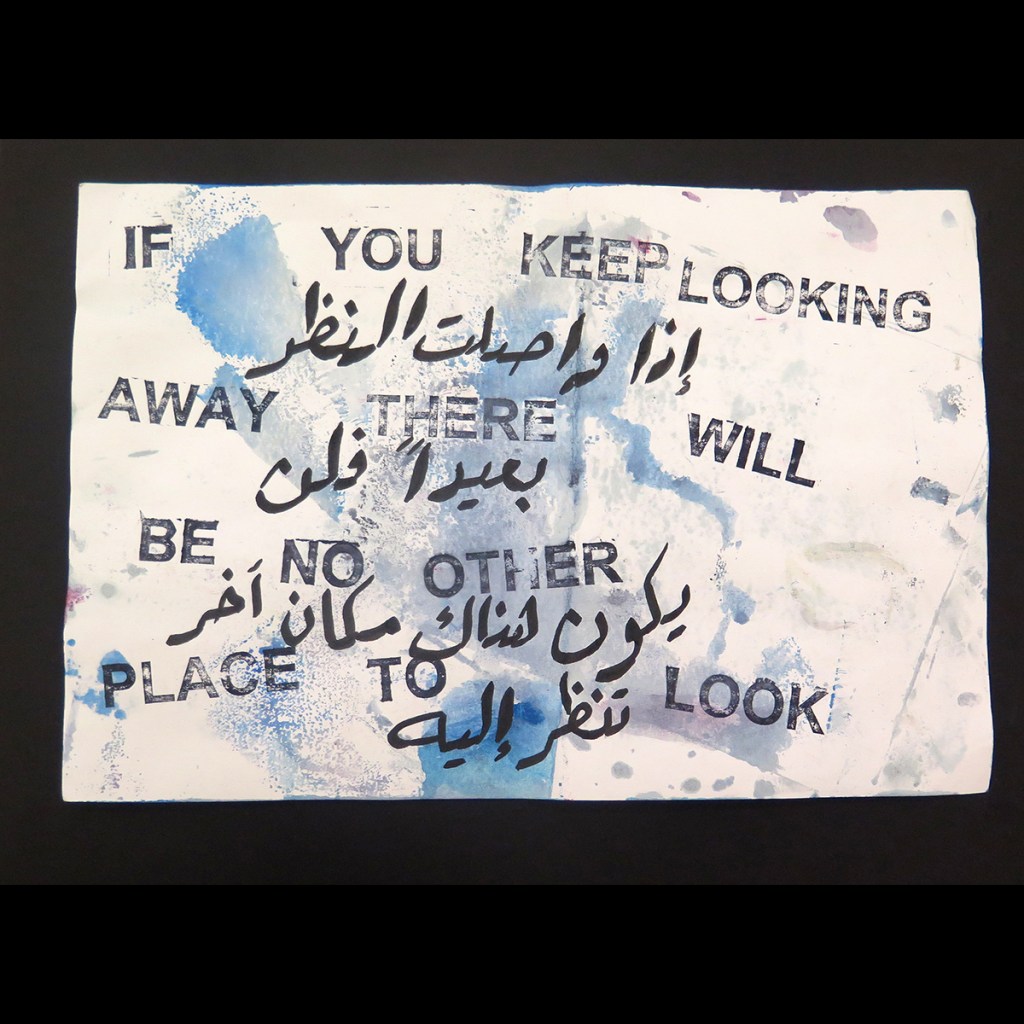 IF YOU KEEP LOOKING
إذا واصلت النظر
AWAY THERE WILL
بعيداً فلن
BE NO OTHER
يكون هناك مكان آخر
PLACE TO LOOK
تنظر إليه